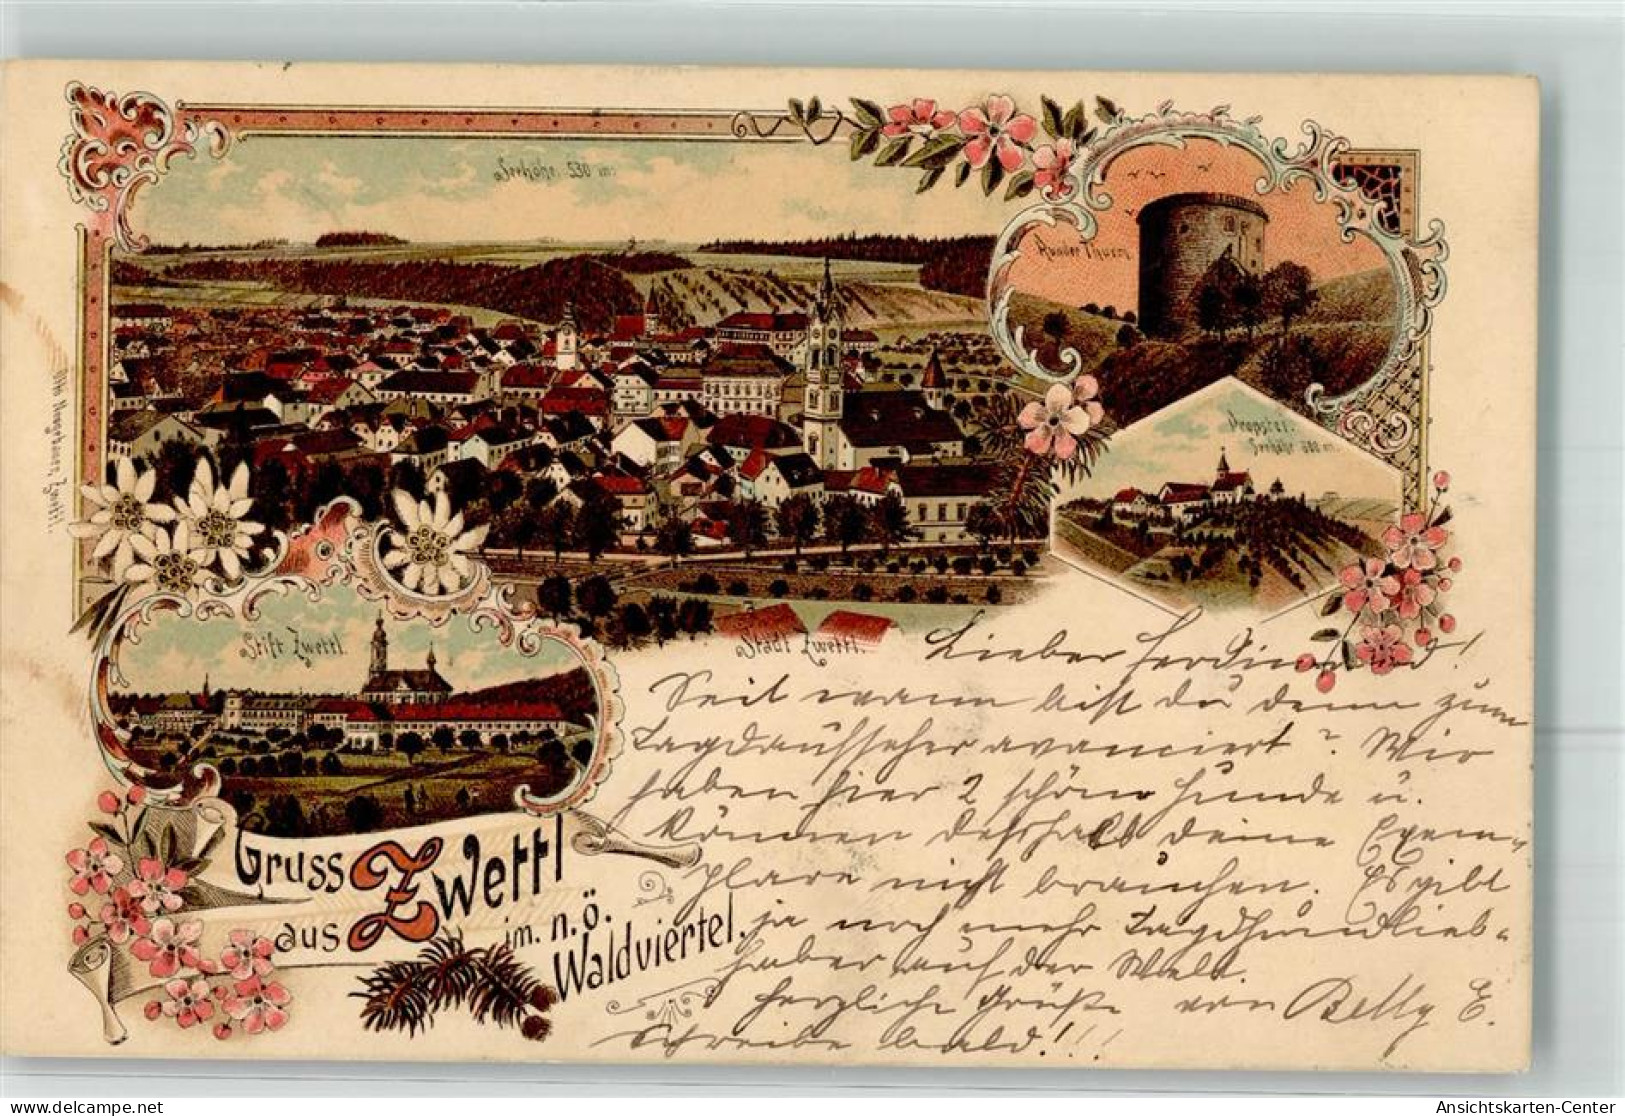 Seehöhe. 530 m.
Runder Thurm.
Propstei.
Seehöhe 580 m.
Otto Neugebauer, Zwettl.
Stift Zwettl.
Stadt Zwettl.
Gruss
aus Zwettl
im. n. ö.
Waldviertel.
Lieber Ferdinand!
Seit wann bist du denn zum
Jagdaufseher avanciert? Wir
haben hier 2 schöne Hunde u.
können deßhalb deine Exem-
plare nicht brauchen. Es gibt
ja noch mehr Jagdhundlieb-
haber auf der Welt.
Herzliche Grüße von Belly E.
Schreibe bald!!!
delcampe.net
Ansichtskarten-Center